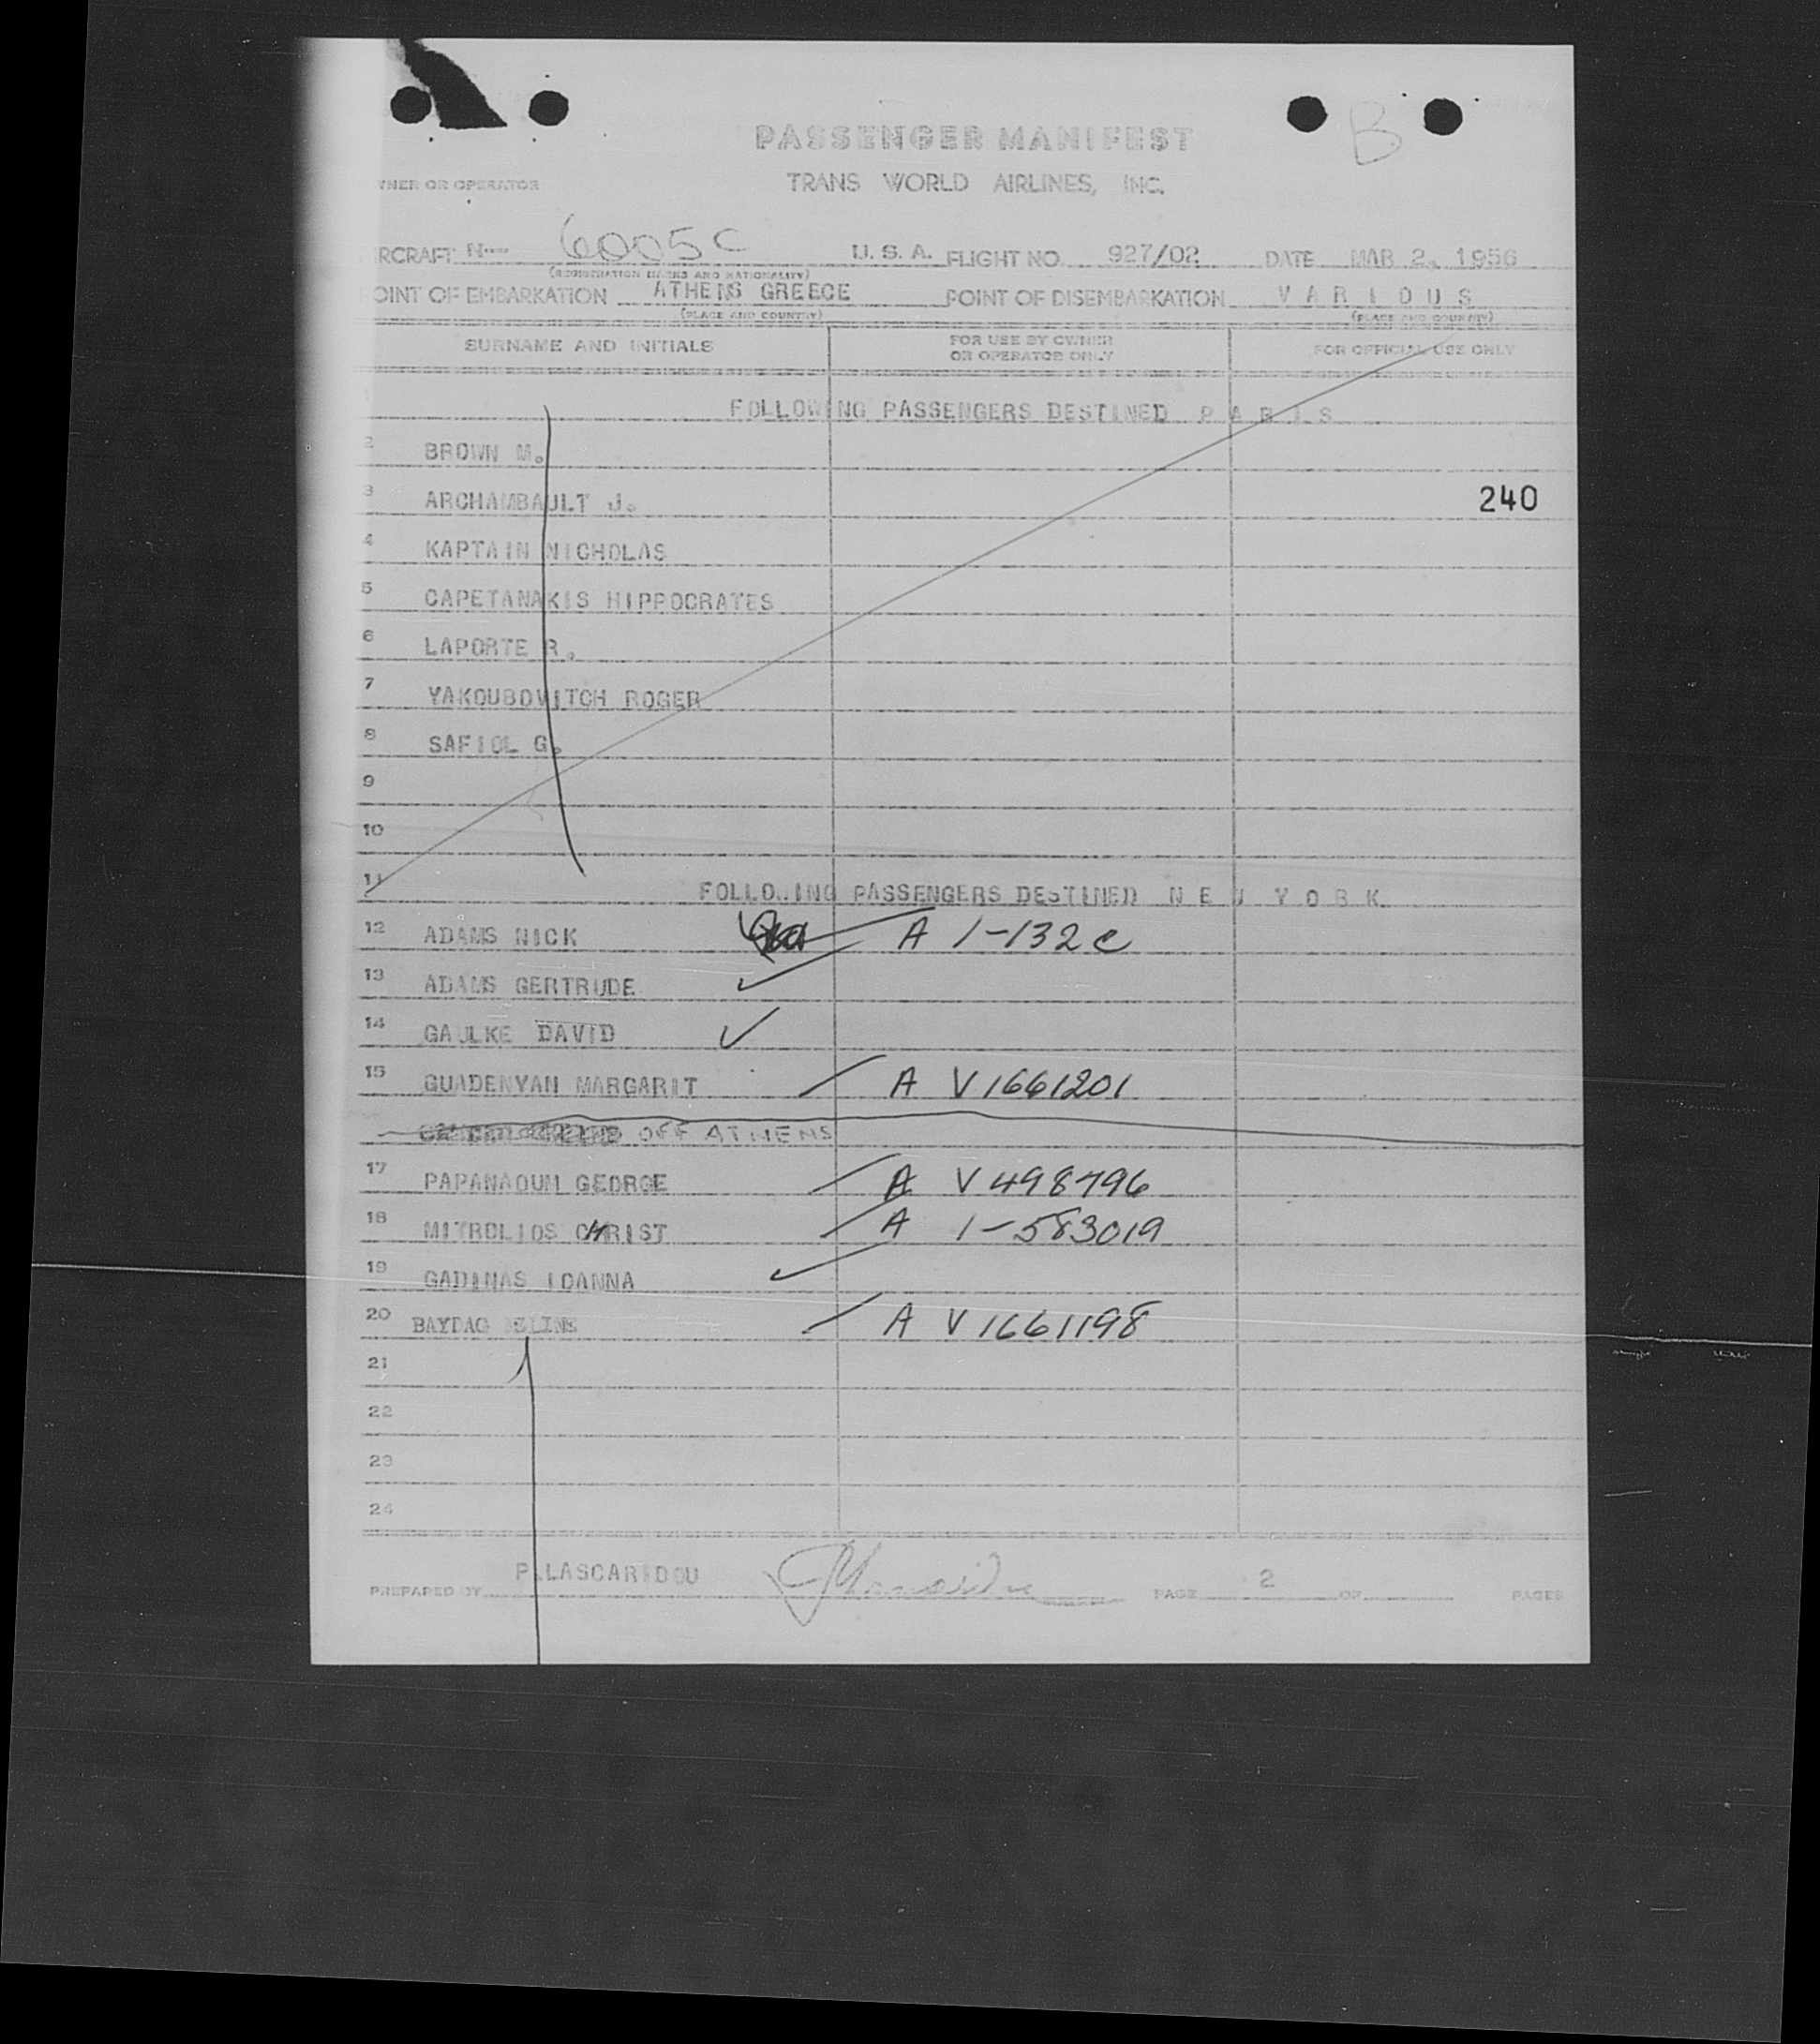 B
PASSENGER MANIFEST
WNER OR OPERATOR
TRANS WORLD AIRLINES, INC.
RCRAFT N— 6005C U.S.A. FLIGHT NO. 927/02 DATE MAR 2, 1956
(REGISTRATION MARKS AND NATIONALITY)
OINT OF EMBARKATION ATHENS GREECE POINT OF DISEMBARKATION VARIOUS
(PLACE AND COUNTRY) (PLACE AND COUNTRY)
SURNAME AND INITIALS FOR USE BY OWNER OR OPERATOR ONLY FOR OFFICIAL USE ONLY
FOLLOWING PASSENGERS DESTINED PARIS
2 BROWN M.
3 ARCHAMBAULT J. 240
4 KAPTAIN NICHOLAS
5 CAPETANAKIS HIPPOCRATES
6 LAPORTE R.
7 YAKOUBOVITCH ROGER
8 SAFIOL G.
9
10
11 FOLLOWING PASSENGERS DESTINED NEW YORK
12 ADAMS NICK A 1-132 e
13 ADAMS GERTRUDE
14 GAULKE DAVID
15 GUADENYAN MARGARIT A V1661201
OFF ATHENS
17 PAPANAOUM GEORGE A V498796
18 MITROLIOS CHRIST A 1-583019
19 GADINAS IOANNA
20 BAYDAG A V1661198
21
22
23
24
PREPARED BY P.LASCARIDOU PAGE 2 OF PAGES